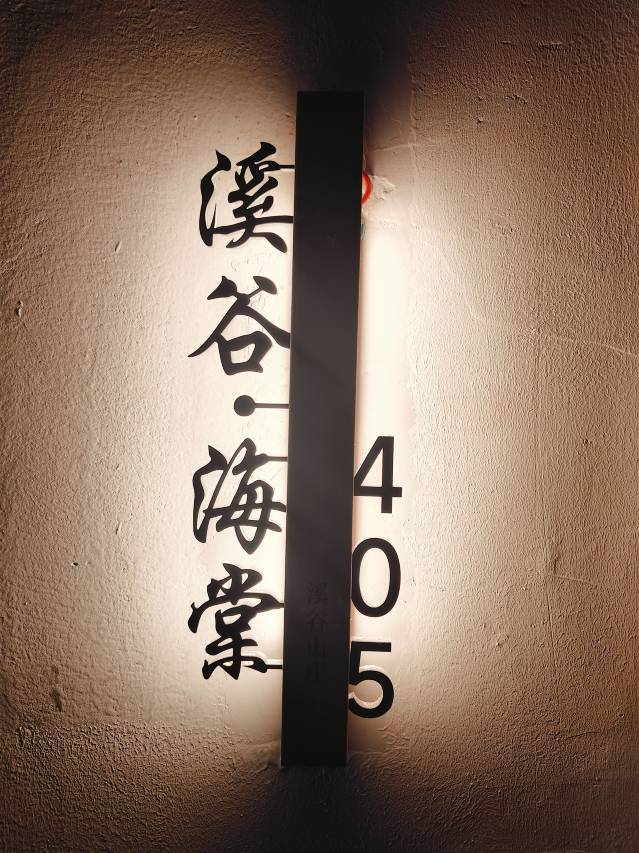 溪谷·海棠
405
溪谷山